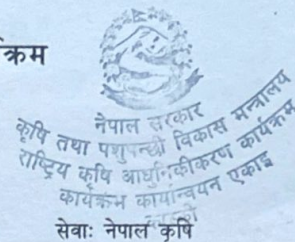 क्रम
नेपाल सरकार
कृषि तथा पशुपन्छी विकास मन्त्रालय
राष्ट्रिय कृषि आधुनिकीकरण कार्यक्रम
कार्यक्रम कार्यान्वयन एकाइ
सेवाः नेपाल कृषि